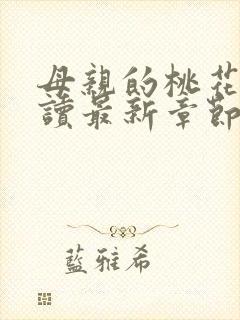 母親的桃花
讀最新章節
藍雅希